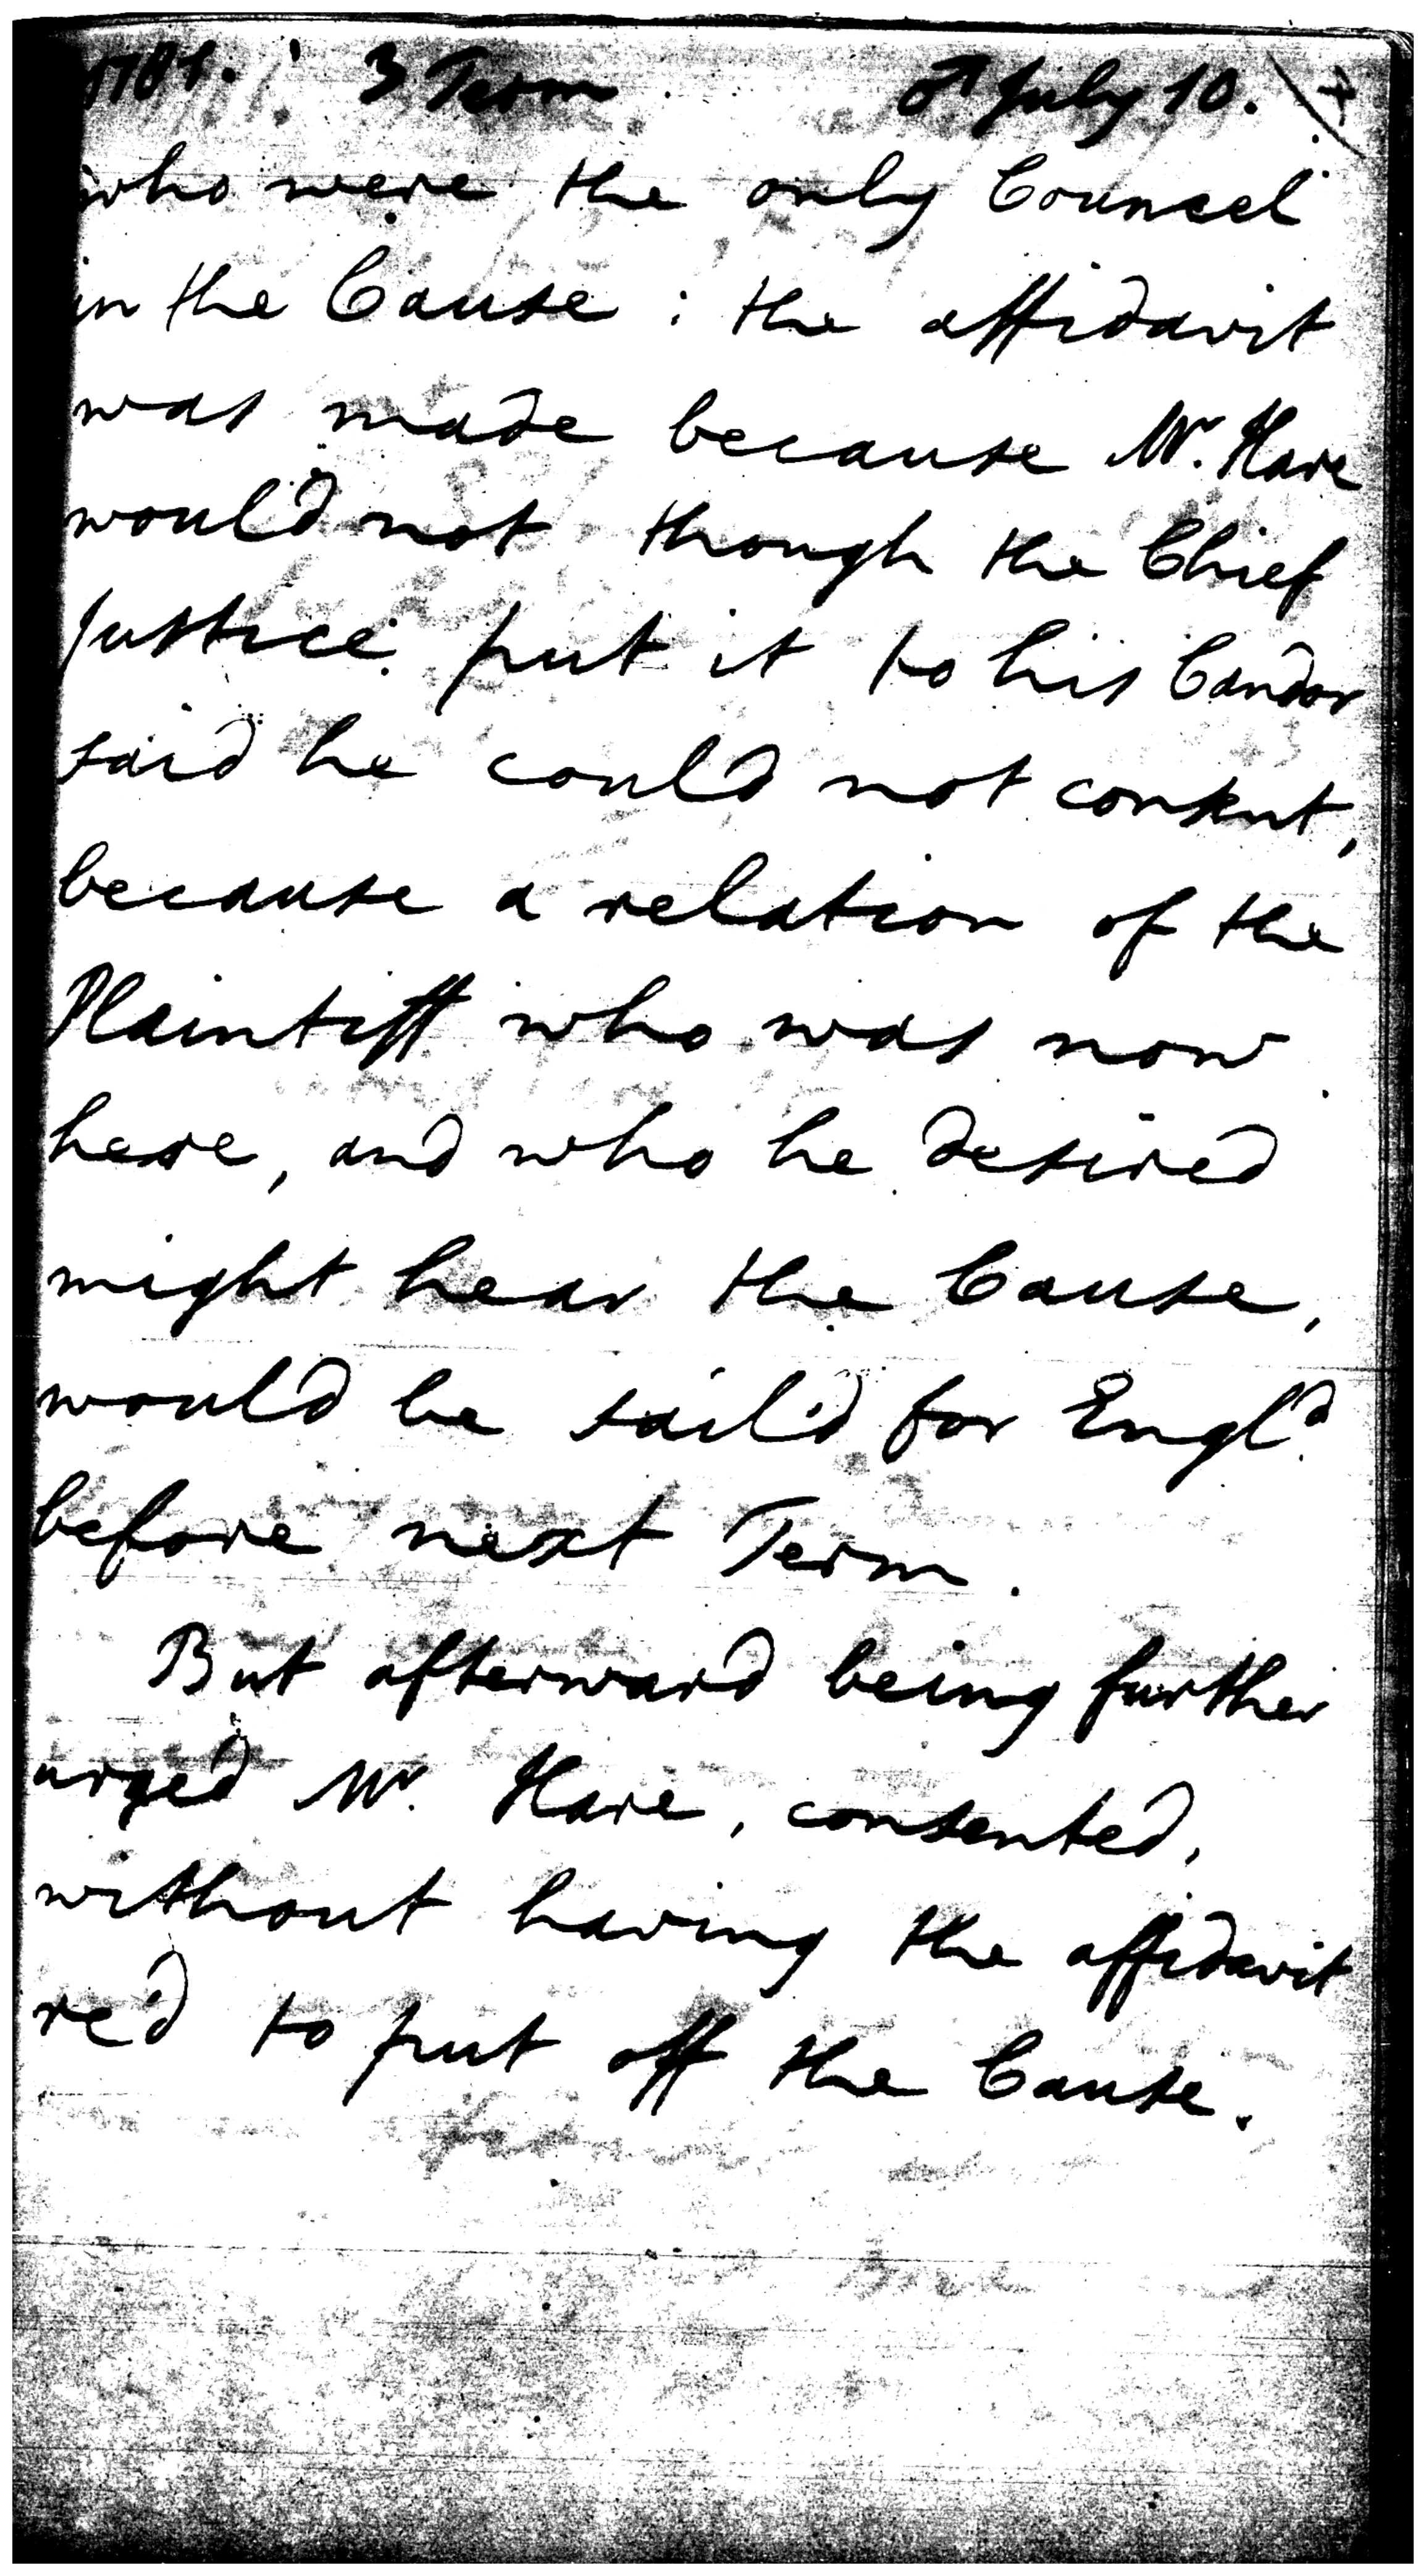 1781. 3 Term ♂ July 10.
who were the only Councel
in the Cause : the affidavit
was made because Mr. Hare
would not though the Chief
Justice put it to his Candor
said he could not consent,
because a relation of the
Plaintiff who was now
here, and who he desired
might hear the Cause,
would be sail'd for Engld.
before next Term.
But afterward being further
urged Mr. Hare, consented,
without having the affidavit
re'd to put off the Cause.